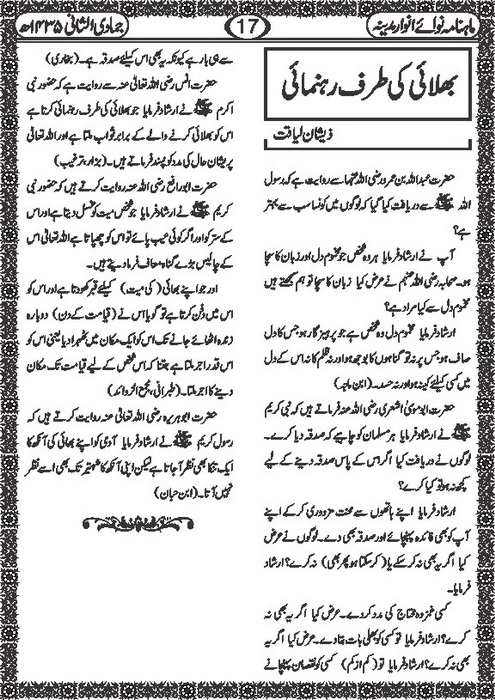 ماہنامہ نوائے انوار مدینہ
17
جمادی الثانی ۱۴۳۵ھ
بھلائی کی طرف رہنمائی
ذیشان لیاقت
حضرت عبداللہ بن عمر و رضی اللہ عنہما سے روایت ہے کہ رسول
اللہ ﷺ سے دریافت کیا گیا کہ لوگوں میں کونسا سب سے بہتر
ہے؟
آپ نے ارشاد فرمایا ہر وہ شخص جو مخموم دل اور زبان کا سچا
ہو۔ صحابہ رضی اللہ عنہم نے عرض کیا زبان کا سچا تو ہم سمجھتے ہیں
مخموم دل سے کیا مراد ہے؟
ارشاد فرمایا مخموم دل وہ شخص ہے جو پرہیزگار ہو جس کا دل
صاف ہو جس پر نہ تو گناہوں کا بوجھ ہو اور نہ ظلم کا نہ اس کے دل
میں کسی کیلئے کینہ ہو اور نہ حسد۔ (ابن ماجہ)
حضرت ابو موسیٰ اشعری رضی اللہ عنہ فرماتے ہیں کہ نبی کریم
ﷺ نے ارشاد فرمایا ہر مسلمان کو چاہیے کہ صدقہ دیا کرے۔
لوگوں نے دریافت کیا اگر اس کے پاس صدقہ دینے کے لیے
کچھ نہ ہو تو کیا کرے؟
ارشاد فرمایا اپنے ہاتھوں سے محنت مزدوری کر کے اپنے
آپ کو بھی فائدہ پہنچائے اور صدقہ بھی دے۔ لوگوں نے عرض
کیا اگر یہ بھی نہ کر سکے یا (کر سکتا ہو پھر بھی) نہ کرے؟ ارشاد
فرمایا۔
کسی غمزدہ محتاج کی مدد کر دے۔ عرض کیا اگر یہ بھی نہ
کرے؟ ارشاد فرمایا تو کسی کو بھلی بات بتا دے۔ عرض کیا اگر یہ
بھی نہ کرے؟ ارشاد فرمایا تو (کم از کم) کسی کو نقصان پہنچانے
سے ہی باز رہے کیونکہ یہ بھی اس کیلئے صدقہ ہے۔ (بخاری)
حضرت انس رضی اللہ تعالیٰ عنہ سے روایت ہے کہ حضور نبی
اکرم ﷺ نے ارشاد فرمایا جو بھلائی کی طرف رہنمائی کرتا ہے
اس کو بھلائی کرنے والے کے برابر ثواب ملتا ہے اور اللہ تعالیٰ
پریشان حال کی مدد کو پسند فرماتے ہیں۔ (بزار، ترغیب)
حضرت ابو رافع رضی اللہ عنہ روایت کرتے ہیں کہ حضور نبی
کریم ﷺ نے ارشاد فرمایا جو شخص میت کو غسل دیتا ہے اور اس
کے ستر کو اور اگر کوئی عیب پائے تو اس کو چھپاتا ہے اللہ تعالیٰ اس
کے چالیس بڑے گناہ معاف فرما دیتے ہیں۔
اور جو اپنے بھائی (کی میت) کیلئے قبر کھودتا ہے اور اس کو
اس میں دفن کرتا ہے تو گویا اس نے (قیامت کے دن) دوبارہ
زندہ اٹھائے جانے تک اس کو ایک مکان میں ٹھہرا دیا یعنی اس کو
اس قدر اجر ملتا ہے جتنا کہ اس شخص کے لیے قیامت تک مکان
دینے کا اجر ملتا۔ (طبرانی، مجمع الزوائد)
حضرت ابو ہریرہ رضی اللہ تعالیٰ عنہ روایت کرتے ہیں کہ
رسول کریم ﷺ نے ارشاد فرمایا آدمی کو اپنے بھائی کی آنکھ کا
ایک تنکا بھی نظر آجاتا ہے لیکن اپنی آنکھ کا شہتیر تک بھی اسے نظر
نہیں آتا۔ (ابن حبان)